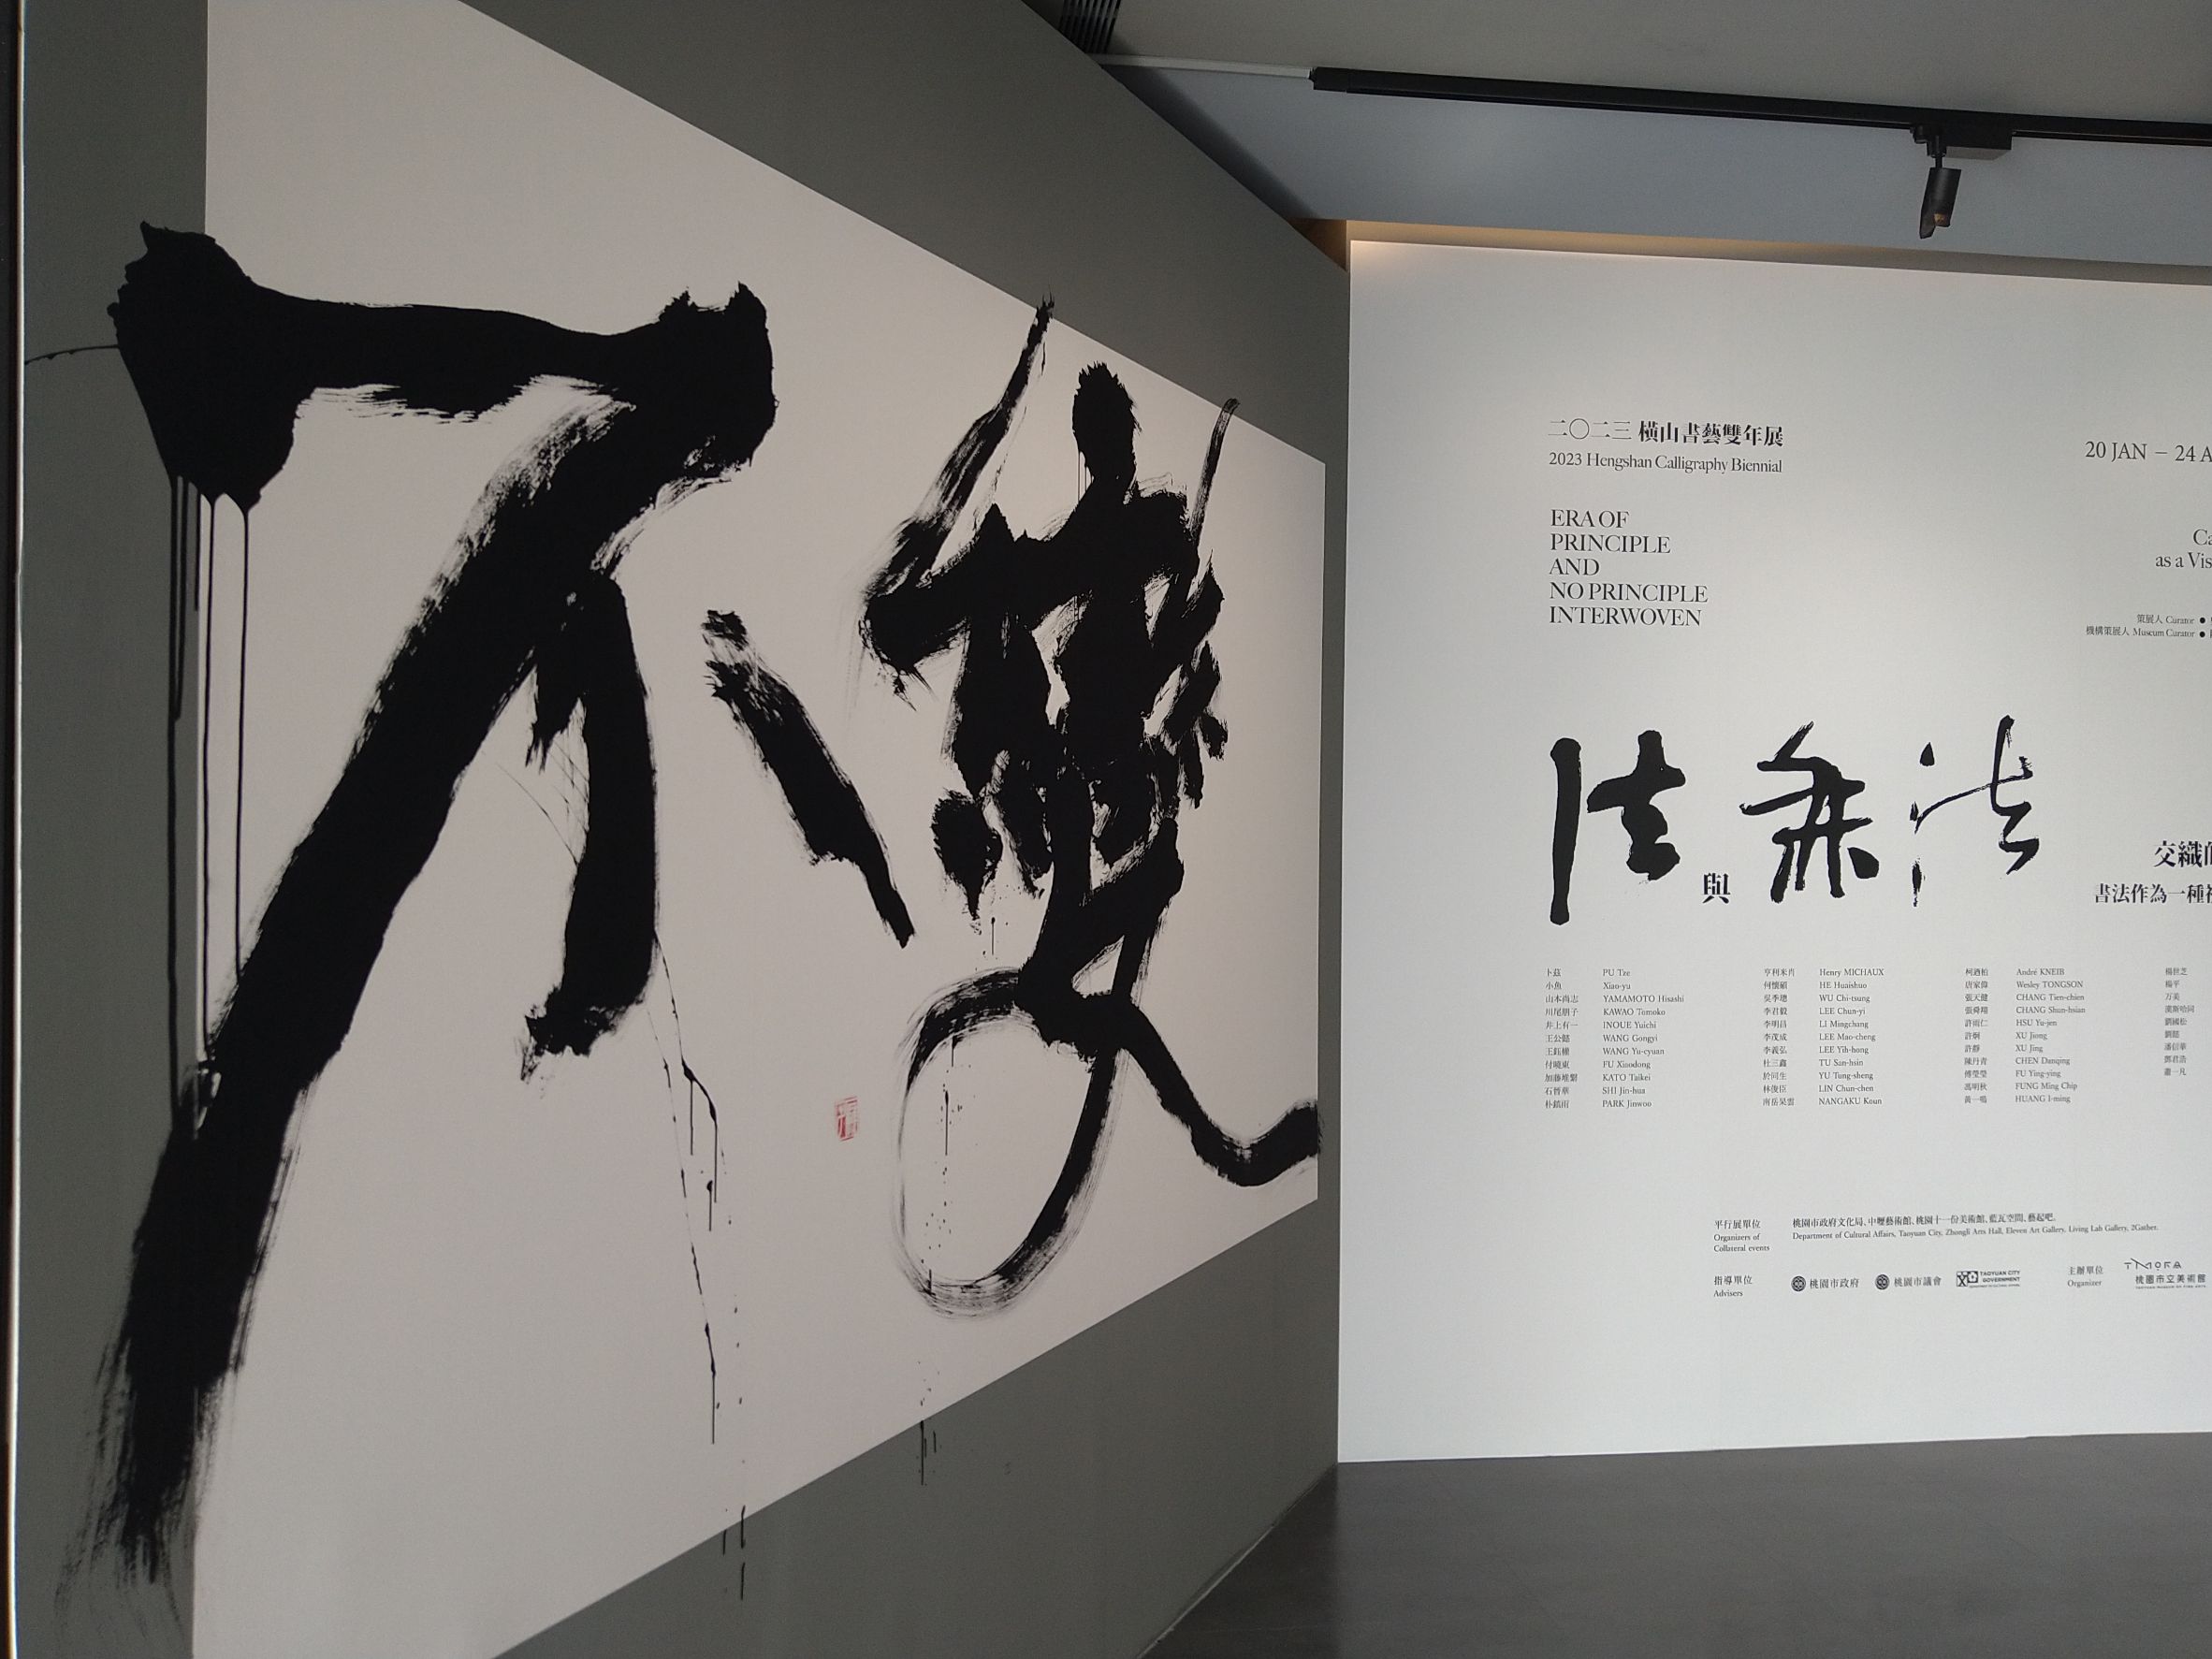 不變
二〇二三 橫山書藝雙年展
2023 Hengshan Calligraphy Biennial
20 JAN – 24 A
ERA OF
PRINCIPLE
AND
NO PRINCIPLE
INTERWOVEN
Ca
as a Vis
策展人 Curator ●
機構策展人 Museum Curator ●
法與無法
交織
書法作為一種
卜茲 PU Tze
小魚 Xiao-yu
山本尚志 YAMAMOTO Hisashi
川尾朋子 KAWAO Tomoko
井上有一 INOUE Yuichi
王公懿 WANG Gongyi
WANG Yu-cyuan
付曉東 FU Xiaodong
加藤堆繫 KATO Taikei
石晉華 SHI Jin-hua
朴鎮雨 PARK Jinwoo
亨利米肖 Henry MICHAUX
何懷碩 HE Huaishuo
吳季璁 WU Chi-tsung
李君毅 LEE Chun-yi
李明昌 LI Mingchang
李茂成 LEE Mao-cheng
李義弘 LEE Yih-hong
杜三鑫 TU San-hsin
於同生 YU Tung-sheng
林俊臣 LIN Chun-chen
南岳杲雲 NANGAKU Koun
柯迺柏 André KNEIB
唐家偉 Wesley TONGSON
張天健 CHANG Tien-chien
張舜翔 CHANG Shun-hsian
許雨仁 HSU Yu-jen
許炯 XU Jiong
許靜 XU Jing
陳丹青 CHEN Danqing
傅瑩瑩 FU Ying-ying
馮明秋 FUNG Ming Chip
黃一鳴 HUANG I-ming
楊世芝
楊平
万美
漢斯哈同
劉國松
劉懿
潘信華
鄭君浩
蕭一凡
平行展單位 桃園市政府文化局、中壢藝術館、桃園十一份美術館、藍瓦空間、藝起吧。
Organisers of Collateral events Department of Cultural Affairs, Taoyuan City, Zhongli Arts Hall, Eleven Art Gallery, Living Lab Gallery, 2Gather.
指導單位 Advisers 桃園市政府 桃園市議會 TAOYUAN CITY GOVERNMENT
主辦單位 Organizer TMoFA 桃園市立美術館